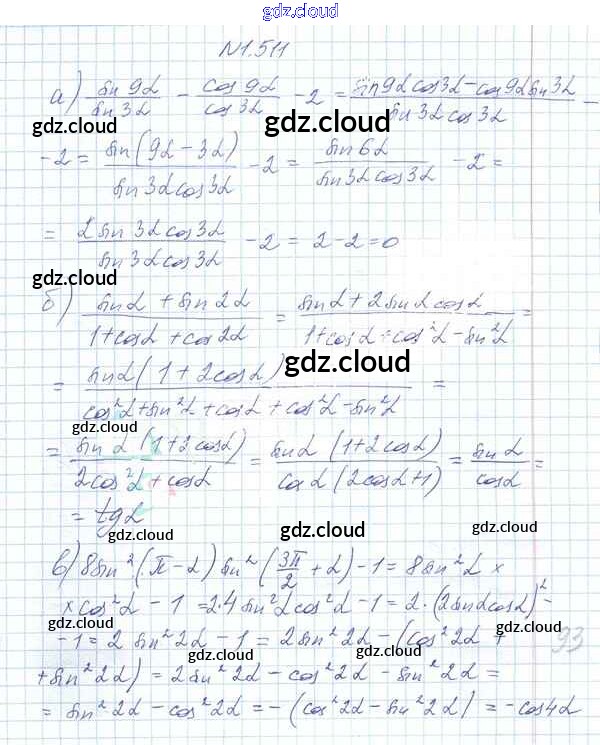 gdz.cloud
N1.511
а) sin 9α / sin 3α − cos 9α / cos 3α − 2 = (sin 9α cos 3α − cos 9α sin 3α) / (sin 3α cos 3α) −
gdz.cloud
− 2 = sin(9α − 3α) / (sin 3α cos 3α) − 2 = sin 6α / (sin 3α cos 3α) − 2 =
= 2 sin 3α cos 3α / (sin 3α cos 3α) − 2 = 2 − 2 = 0
gdz.cloud
gdz.cloud
б) (sin α + sin 2α) / (1 + cos α + cos 2α) = (sin α + 2 sin α cos α) / (1 + cos α + cos²α − sin²α)
gdz.cloud
= sin α (1 + 2cos α) / (cos²α + sin²α + cos α + cos²α − sin²α) =
gdz.cloud
gdz.cloud
= sin α (1 + 2cos α) / (2cos²α + cos α) = sin α (1 + 2cos α) / (cos α (2cos α + 1)) = sin α / cos α =
= tg α
gdz.cloud
gdz.cloud
в) 8 sin²(π − α) sin²(3π/2 + α) − 1 = 8 sin²α ×
× cos²α − 1 = 2·4 sin²α cos²α − 1 = 2·(2 sin α cos α)² −
gdz.cloud
gdz.cloud
− 1 = 2 sin²2α − 1 = 2 sin²2α − (cos²2α +
93
+ sin²2α) = 2 sin²2α − cos²2α − sin²2α =
gdz.cloud
= sin²2α − cos²2α = −(cos²2α − sin²2α) = −cos 4α
gdz.cloud
gdz.cloud